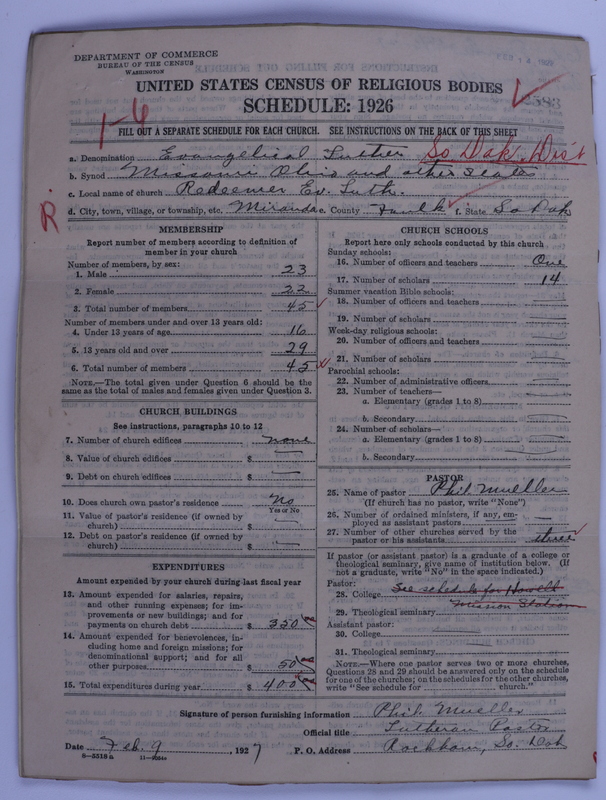 DEPARTMENT OF COMMERCE
BUREAU OF THE CENSUS
WASHINGTON
UNITED STATES CENSUS OF RELIGIOUS BODIES
SCHEDULE: 1926
1-6
FILL OUT A SEPARATE SCHEDULE FOR EACH CHURCH. SEE INSTRUCTIONS ON THE BACK OF THIS SHEET
a. Denomination Evangelical Luther So. Dak. Dist
b. Synod Missouri Ohio and other States
c. Local name of church Redeemer Ev. Luth.
d. City, town, village, or township, etc. Miranda e. County Faulk f. State So Dak
R.
MEMBERSHIP
Report number of members according to definition of member in your church
Number of members, by sex:
1. Male 23
2. Female 22
3. Total number of members 45
Number of members under and over 13 years old:
4. Under 13 years of age 16
5. 13 years old and over 29
6. Total number of members 45
NOTE.—The total given under Question 6 should be the same as the total of males and females given under Question 3.
CHURCH BUILDINGS
See instructions, paragraphs 10 to 12
7. Number of church edifices none
8. Value of church edifices $
9. Debt on church edifices $
10. Does church own pastor's residence No
Yes or No
11. Value of pastor's residence (if owned by church) $
12. Debt on pastor's residence (if owned by church) $
EXPENDITURES
Amount expended by your church during last fiscal year
13. Amount expended for salaries, repairs, and other running expenses; for improvements or new buildings; and for payments on church debt $ 350
14. Amount expended for benevolences, including home and foreign missions; for denominational support; and for all other purposes $ 50
15. Total expenditures during year $ 400
CHURCH SCHOOLS
Report here only schools conducted by this church
Sunday schools:
16. Number of officers and teachers One
17. Number of scholars 14
Summer vacation Bible schools:
18. Number of officers and teachers
19. Number of scholars
Week-day religious schools:
20. Number of officers and teachers
21. Number of scholars
Parochial schools:
22. Number of administrative officers
23. Number of teachers—
a. Elementary (grades 1 to 8)
b. Secondary
24. Number of scholars—
a. Elementary (grades 1 to 8)
b. Secondary
PASTOR
25. Name of pastor Phil. Mueller
(If church has no pastor, write "None")
26. Number of ordained ministers, if any, employed as assistant pastors
27. Number of other churches served by the pastor or his assistants three
If pastor (or assistant pastor) is a graduate of a college or theological seminary, give name of institution below. (If not a graduate, write "No" in the space indicated.)
Pastor:
28. College See schedule for Howell
Mission Station
29. Theological seminary
Assistant pastor:
30. College
31. Theological seminary
NOTE.—Where one pastor serves two or more churches, Questions 28 and 29 should be answered only on the schedule for one of the churches; on the schedules for the other churches, write "See schedule for church."
Signature of person furnishing information Phil. Mueller
Official title Lutheran Pastor
Date Feb. 9, 1927 P. O. Address Rockham, So. Dak
8-5518 a